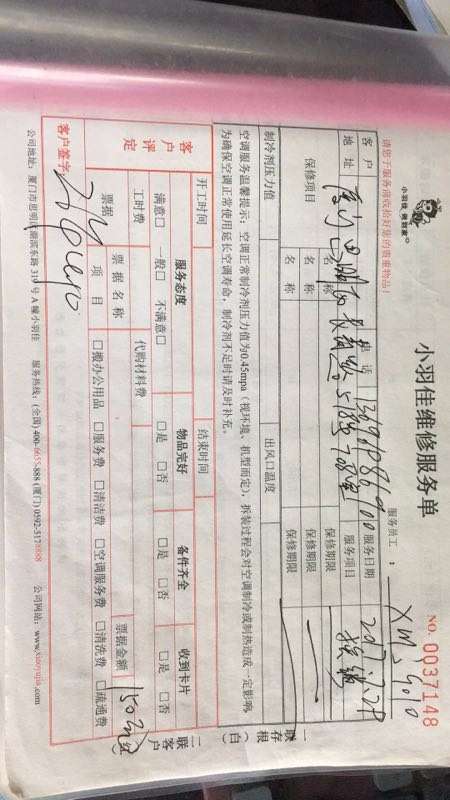 小羽佳 做到家
小羽佳维修服务单
NO. 0037148
请您于服务前收拾好您的贵重物品！
服务员工： XM5010
客户
电话
服务日期 2017.7.29
地址
服务项目
保修项目
名称
保修期限
名称
保修期限
名称
保修期限
制冷剂压力值
出风口温度
空调服务温馨提示：空调正常制冷剂压力值为0.45mpa（视环境、机型而定），拆装过程会对空调制冷或制热造成一定影响，
为确保空调正常使用延长空调寿命，制冷剂不足时请及时补充。
开工时间
结束时间
客户评定
服务态度
物品完好
备件齐全
收到卡片
满意□ 一般□ 不满意□
□是 □否
□是 □否
□是 □否
工时费
代购材料费
票据
票据名称
票据金额 150元
项目
□搬办公用品 □服务费 □清洁费 □空调服务费 □清洗费 □疏通费
客户签字
一联存根（白）
二联客户
公司地址：厦门市思明区湖滨东路319号A幢小羽佳
服务热线：(全国) 400-6655-888 (厦门) 0592-5178888
公司网站：www.xiaoyujia.com